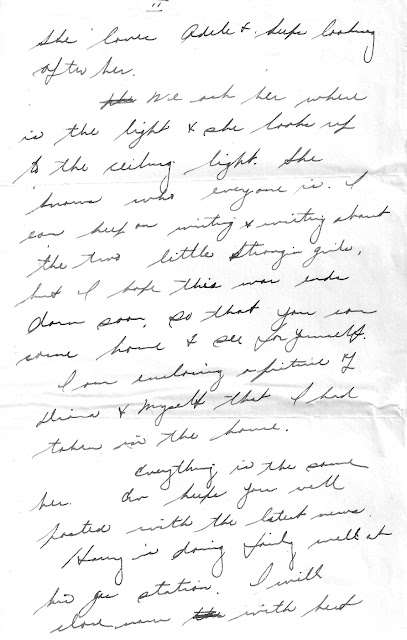 II
She loves Adele & keeps looking
after her.
We ask her where
is the light & she looks up
to the ceiling light. She
knows who everyone is. I
can keep on writing & writing about
the two little Strangin girls,
but I hope this war ends
darn soon, so that you can
come home & see for yourself.
I am enclosing a picture of
Diana & Myself that I had
taken in the house.
Everything is the same
her. keeps you well
posted with the latest news.
Harry is doing fairly well at
his gas station. I will
close now with best